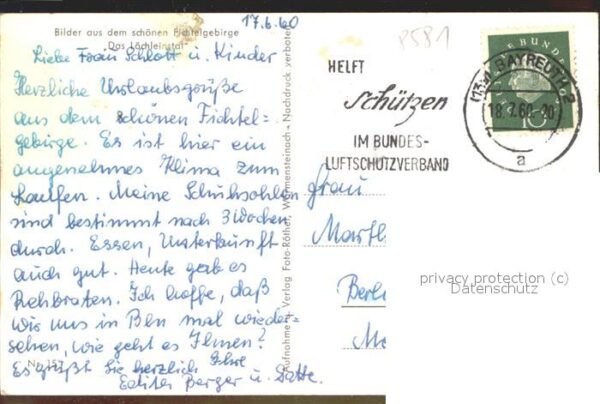 Bilder aus dem schönen Fichtelgebirge
"Das Löchleinstal"
17.6.60
Liebe Frau Schlott u. Kinder
Herzliche Urlaubsgrüße
aus dem schönen Fichtel-
gebirge. Es ist hier ein
angenehmes Klima zum
Laufen. Meine Schuhsohlen
sind bestimmt nach 3 Wochen
durch. Essen, Unterkunft
auch gut. Heute gab es
Rehbraten. Ich hoffe, daß
wir uns in Bln mal wieder-
sehen, wie geht es Ihnen?
Es grüßt Sie herzlich Ihre
Edith Berger u.
Aufnahme u. Verlag Foto-Röthel, Warmensteinach - Nachdruck verboten
8581
HELFT
schützen
IM BUNDES-
LUFTSCHUTZVERBAND
BAYREUTH 2
18.7.60-20
a
10
Frau
Marth
Berl
privacy protection (c)
Datenschutz